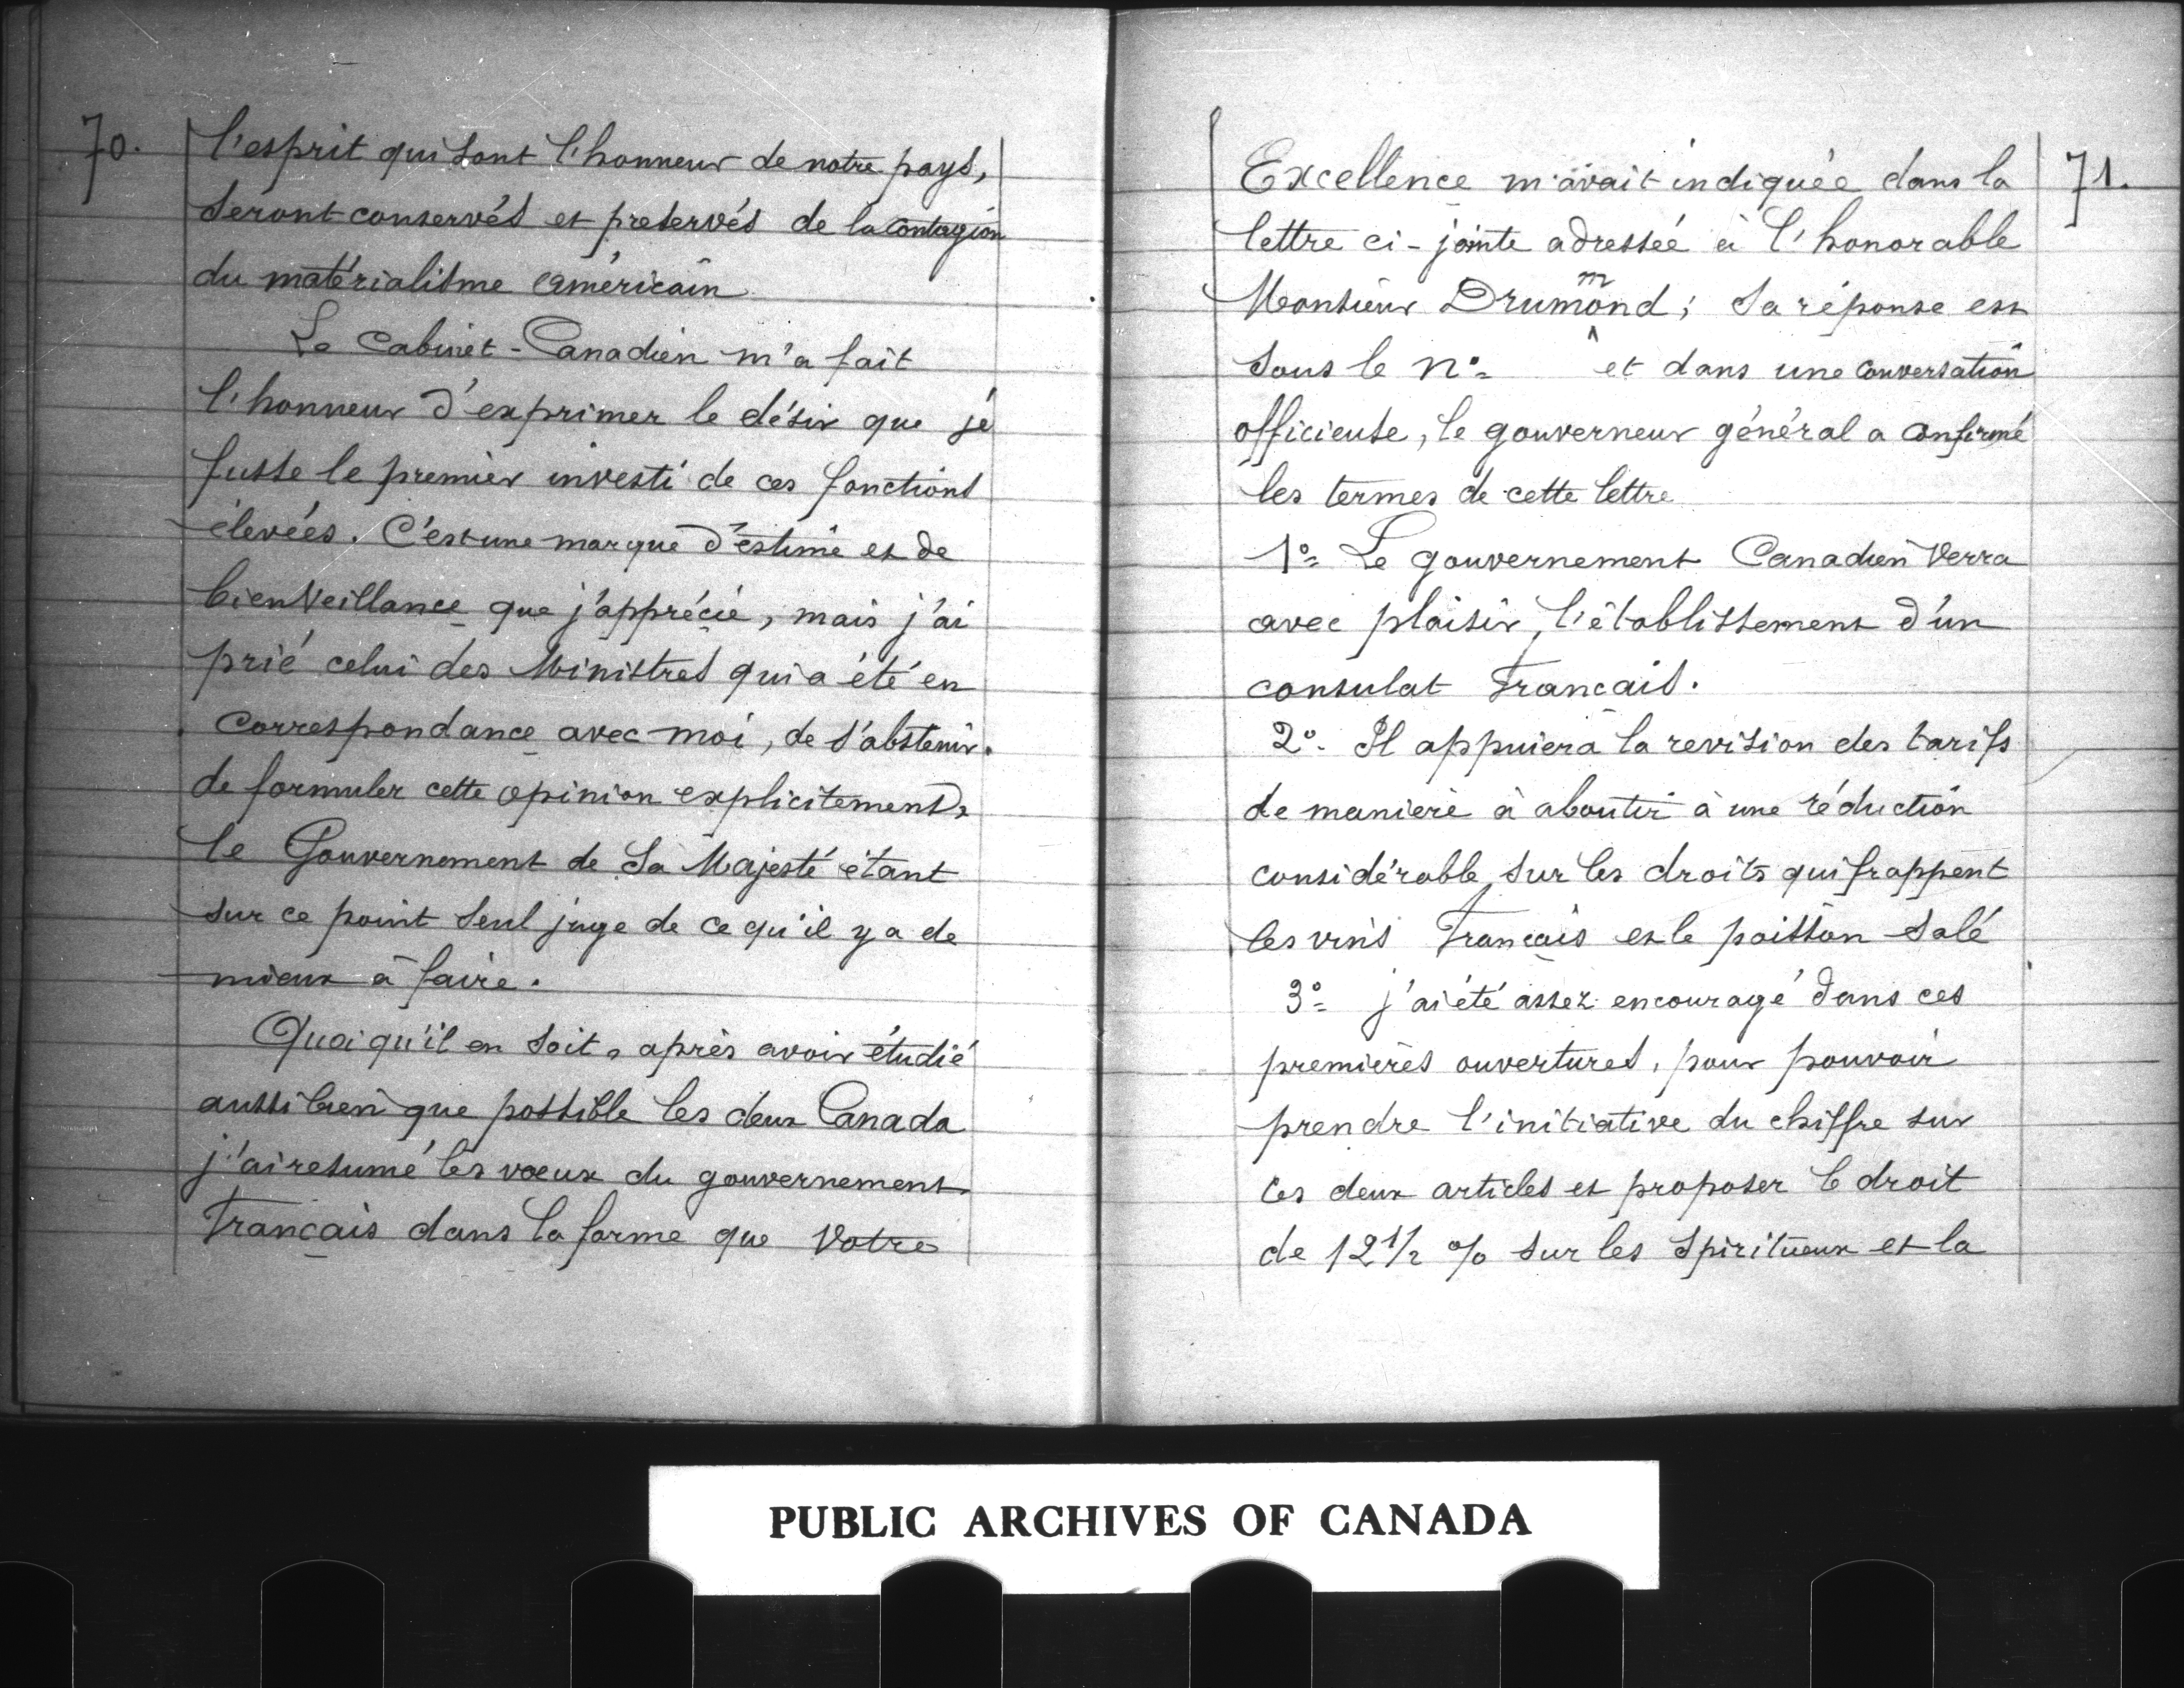 70.
l'esprit qui sont l'honneur de notre pays,
seront conservés et preservés de la contagion
du matérialisme américain
Le Cabinet-Canadien m'a fait
l'honneur d'exprimer le désir que je
fusse le premier investi de ces fonctions
élevées. C'est une marque d'estime et de
bienveillance que j'apprécie, mais j'ai
prié celui des Ministres qui a été en
correspondance avec moi, de s'abstenir.
de formuler cette opinion explicitement,
le Gouvernement de Sa Majesté étant
sur ce point seul juge de ce qu'il y a de
mieux à faire.
Quoiqu'il en soit, après avoir étudié
aussi bien que possible les deux Canada
j'ai resumé les voeux du gouvernement
Français dans la forme que Votre
71.
Excellence m'avait indiquée dans la
lettre ci-jointe adressée à l'honorable
Monsieur Drummond; Sa réponse est
sous le n° et dans une conversation
officieuse, le gouverneur général a confirmé
les termes de cette lettre
1° Le gouvernement Canadien verra
avec plaisir, l'établissement d'un
consulat Français.
2° Il appuiera la revision des tarifs
de maniere à aboutir à une réduction
considérable sur les droits qui frappent
les vins Français et le poisson salé
3° j'ai été assez encouragé dans ces
premières ouvertures, pour pouvoir
prendre l'initiative du chiffre sur
les deux articles et proposer le droit
de 12 1/2 % sur les spiritueux et la
PUBLIC ARCHIVES OF CANADA